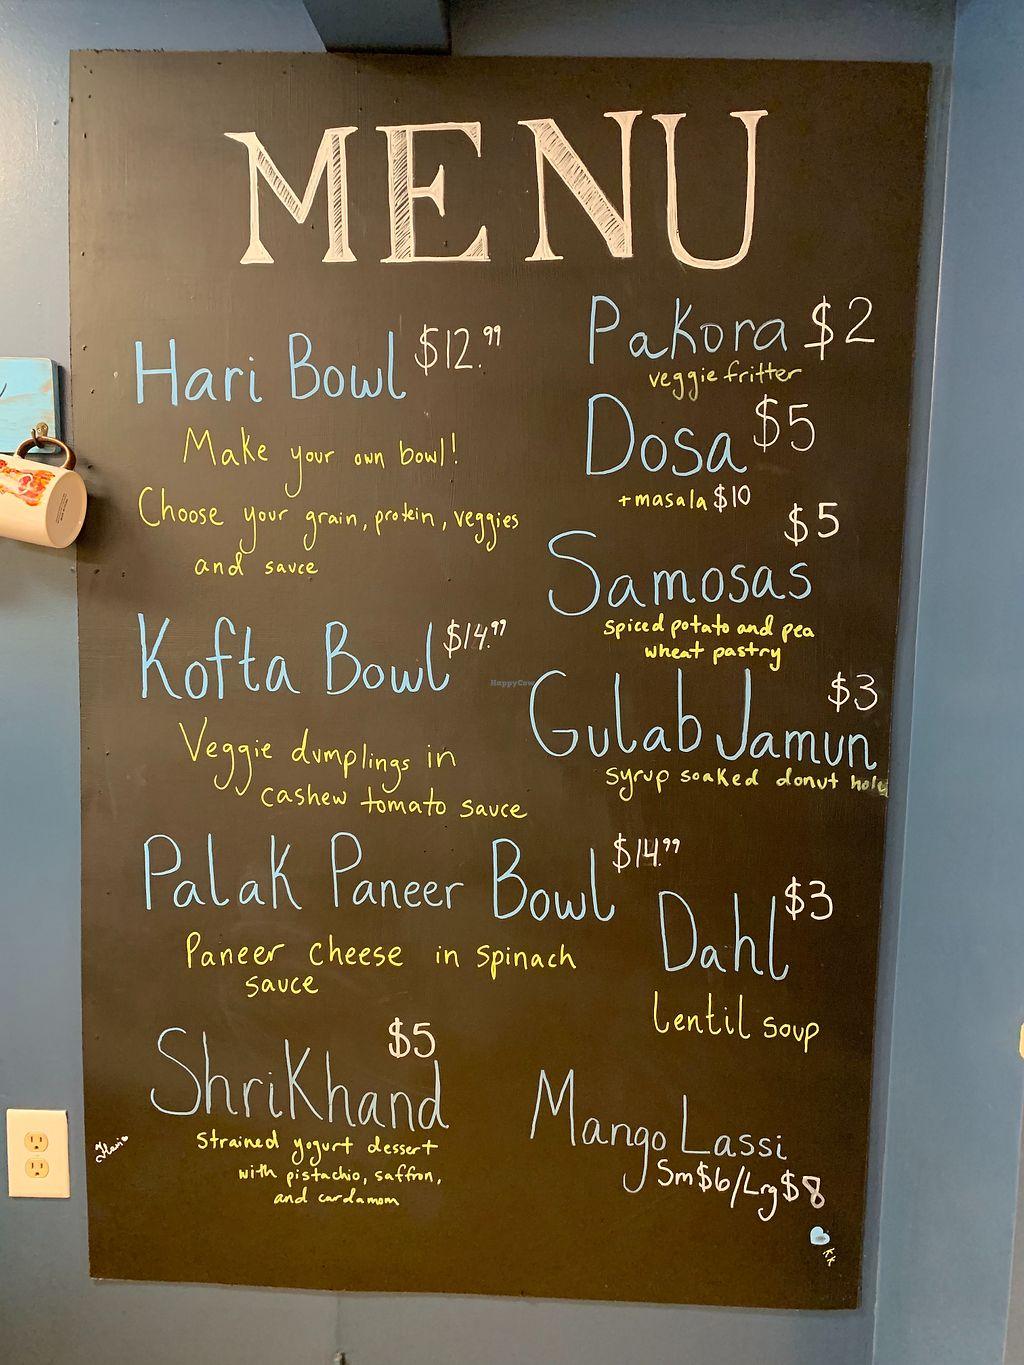 MENU
Hari Bowl $12.99
Make your own bowl!
Choose your grain, protein, veggies
and sauce
Kofta Bowl $14.99
Veggie dumplings in
cashew tomato sauce
Palak Paneer Bowl $14.99
Paneer cheese in spinach
sauce
$5
Shrikhand
strained yogurt dessert
with pistachio, saffron,
and cardamom
Hari
Pakora $2
veggie fritter
Dosa $5
+masala $10
$5
Samosas
spiced potato and pea
wheat pastry
$3
Gulab Jamun
syrup soaked donut hole
Dahl $3
lentil soup
Mango Lassi
Sm$6/Lrg$8
HappyCow